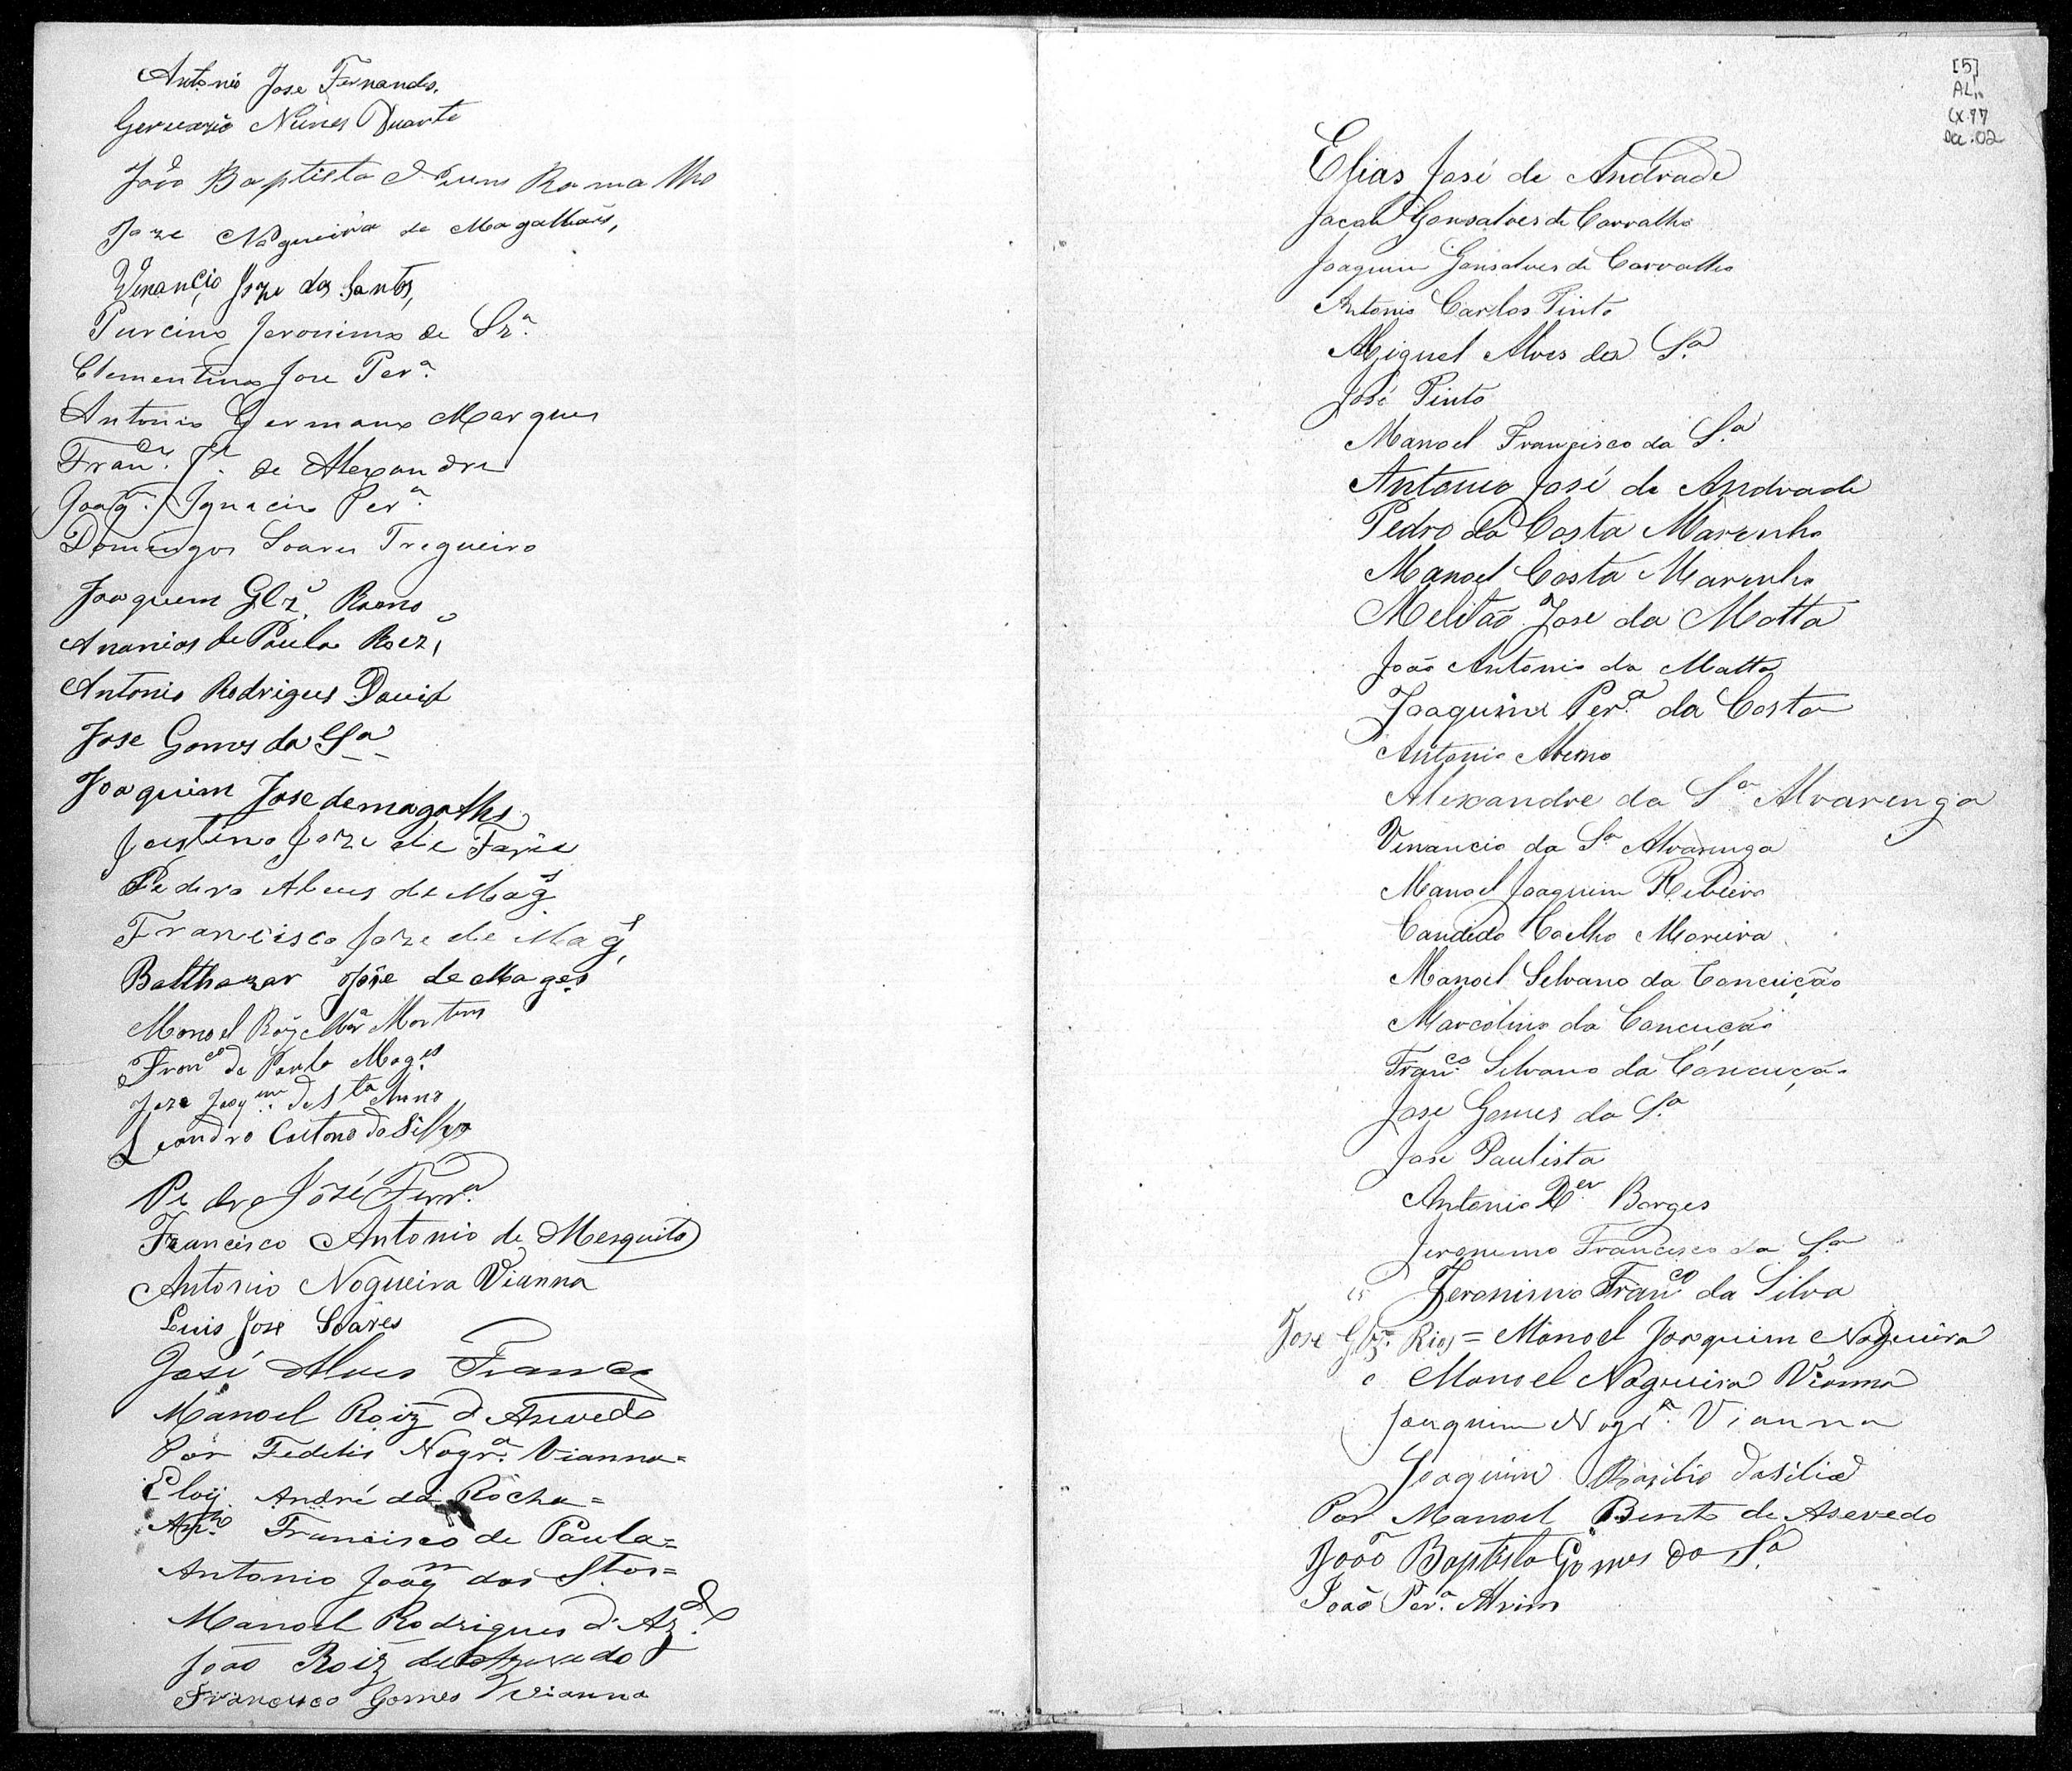 Antonio Jose Fernandes.
Gervazio Nunes Duarte
João Baptista Ramalho
Joze Nogueira de Magalhaẽs,
Venancio Joze dos Santos,
Purcino Jeronimo de Sz.ª
Clementino Jose Per.ª
Antonio Germano Marques
Fran.co J.e de Alexandre
Joaq.m Ignacio Per.ª
Domingos Soares Trigueiro
Joaquem Glz.
Ananias de Paula Roiz,
Antonio Rodrigues David
Jose Gomes da S.ª
Joaquim Jose de magalhs
Justino Joze de Faria
Pedro Alves de Mag.s
Francisco Joze de Mag.s,
Balthazar Jose de Mages.
Manoel Roiz Martins
Fran.co de Paula Mag.es
Joze Joaq.m de S.ta Anna
Leandro Caetano da Silva
Pedro José Ferr.ª
Francisco Antonio de Mesquita
Antonio Nogueira Vianna
Luis Jose Soares
José Alves Franco
Manoel Roiz d'Asevedo
Por Fedelis Nogr.ª Vianna=
Eloy André da Rocha=
Francisco de Paula=
Antonio Joaq.m dos Stos=
Manoel Rodrigues d'Az.do
João Roiz de Azevedo
Francisco Gomes Vianna
[5]
AL,,
Cx.77
Doc.02
Elias José de Andrade
Jacob Gonsalves de Carvalho
Joaquim Gonsalves de Carvalho
Antonio Carlos Pinto
Miguel Alves da S.ª
José Pinto
Manoel Francisco da S.ª
Antonio José de Andrade
Pedro da Costa Marinho
Manoel Costa Marinho
Melitão Jose da Motta
João Antonio da Matta
Joaquim Per.ª da Costa
Antonio
Alexandre da S.ª Alvarenga
Venancio da S.ª Alvarenga
Manoel Joaquim Ribeiro
Candido Coelho Moreira
Manoel Selvano da Conceição
Marcolino da Conceição
Fran.co Selvano da Conceição
Jose Gomes da S.ª
Jose Paulista
Antonio X.er Borges
Jeronimo Francisco da S.ª
Jeronimo Fran.co da Silva
Jose Glz. Rios = Manoel Joaquim Nogueira
e Manoel Nogueira Vianna
Joaquim Nogr.ª Vianna
Joaquim Basilio da Silva
Por Manoel Bento de Asevedo
João Baptista Gomes da S.ª
João Per.ª Alvim